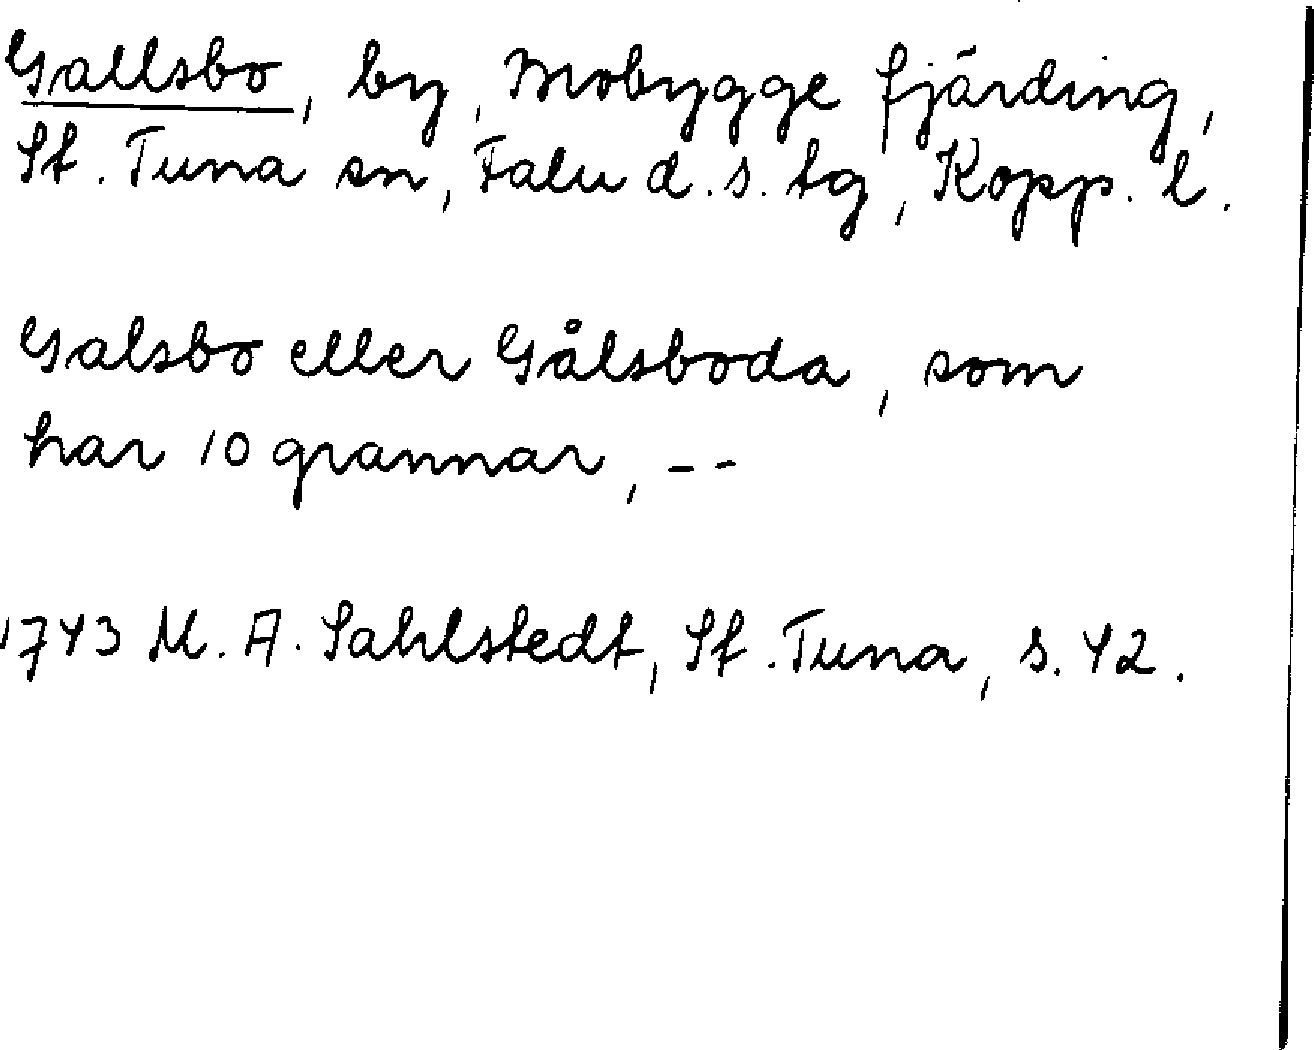 Gallsbo, by, Mobygge fjärding,
St. Tuna sn, Falu d. s. tg, Kopp. l.
Galsbo eller Gålsboda, som
har 10 grannar, --
1743 M. A. Sahlstedt, St. Tuna, s. 42.